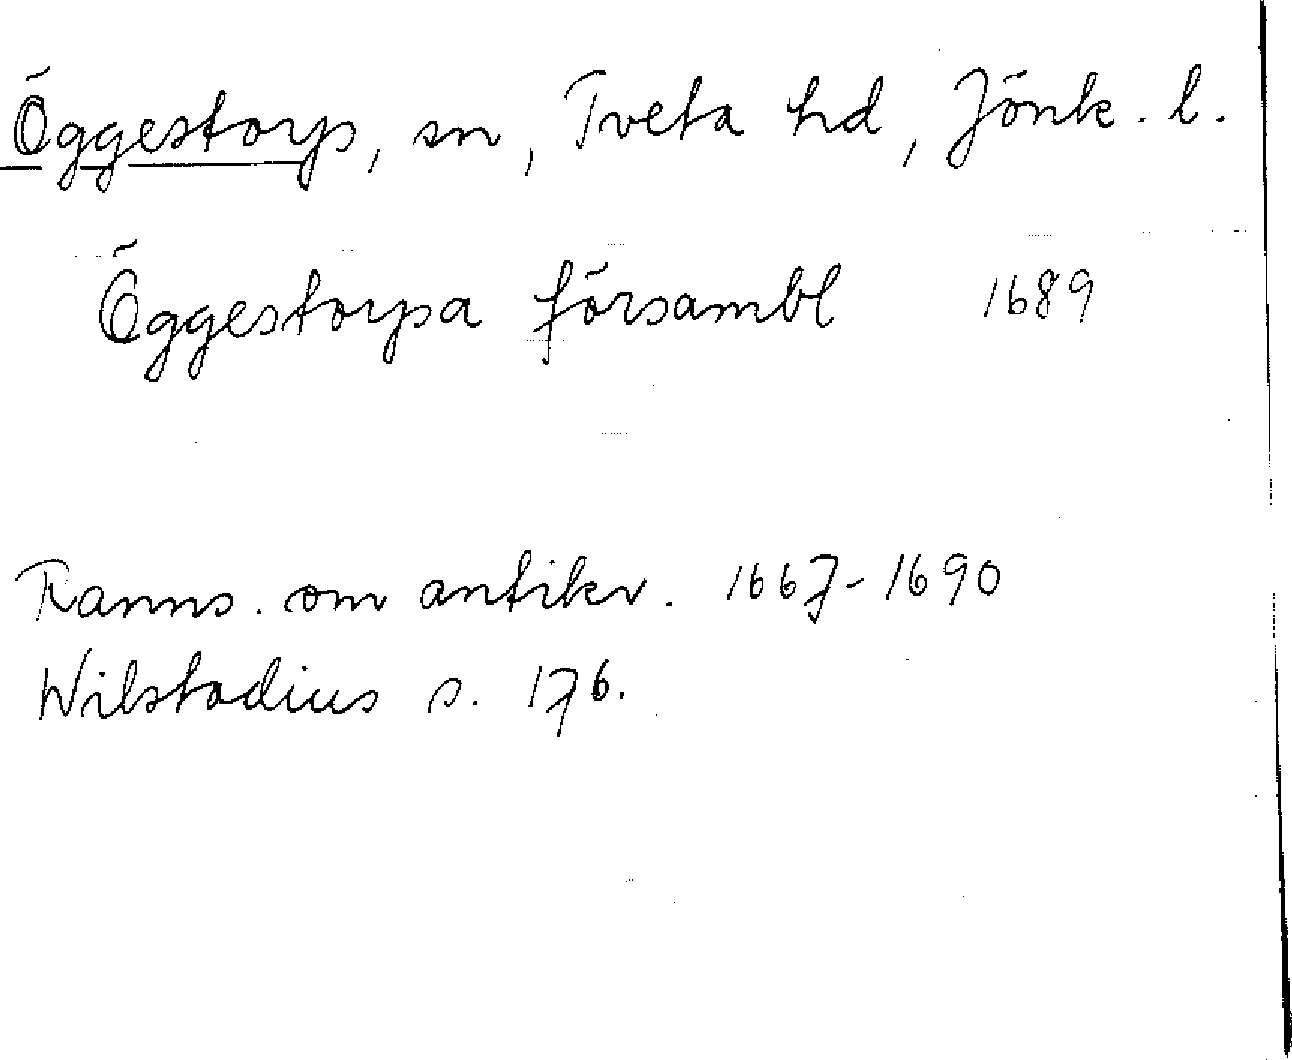 Öggestorp, sn, Tveta hd, Jönk. l.
Öggestorpa försambl 1689
Ranns. om antikv. 1667-1690
Wilstadius s. 176.